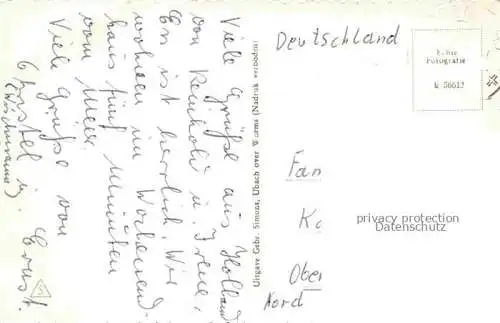 Viele Grüße aus Holland
von Reinhold u. Irene.
Es ist herrlich. Wir
wohnen im Wochenend-
haus fünf Minuten
vom Meer.
Viele Grüße von
Christel u. Ernst.
Uitgave Gebr. Simons, Ubach over Worms (Nadruk verboden)
Deutschland
Echte
Fotografie
Fam
Ka
Ober
Nord
privacy protection
Datenschutz